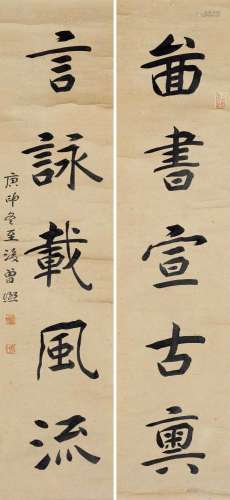 啚書宣古奧
言詠載風流
庚申冬至後曾熙